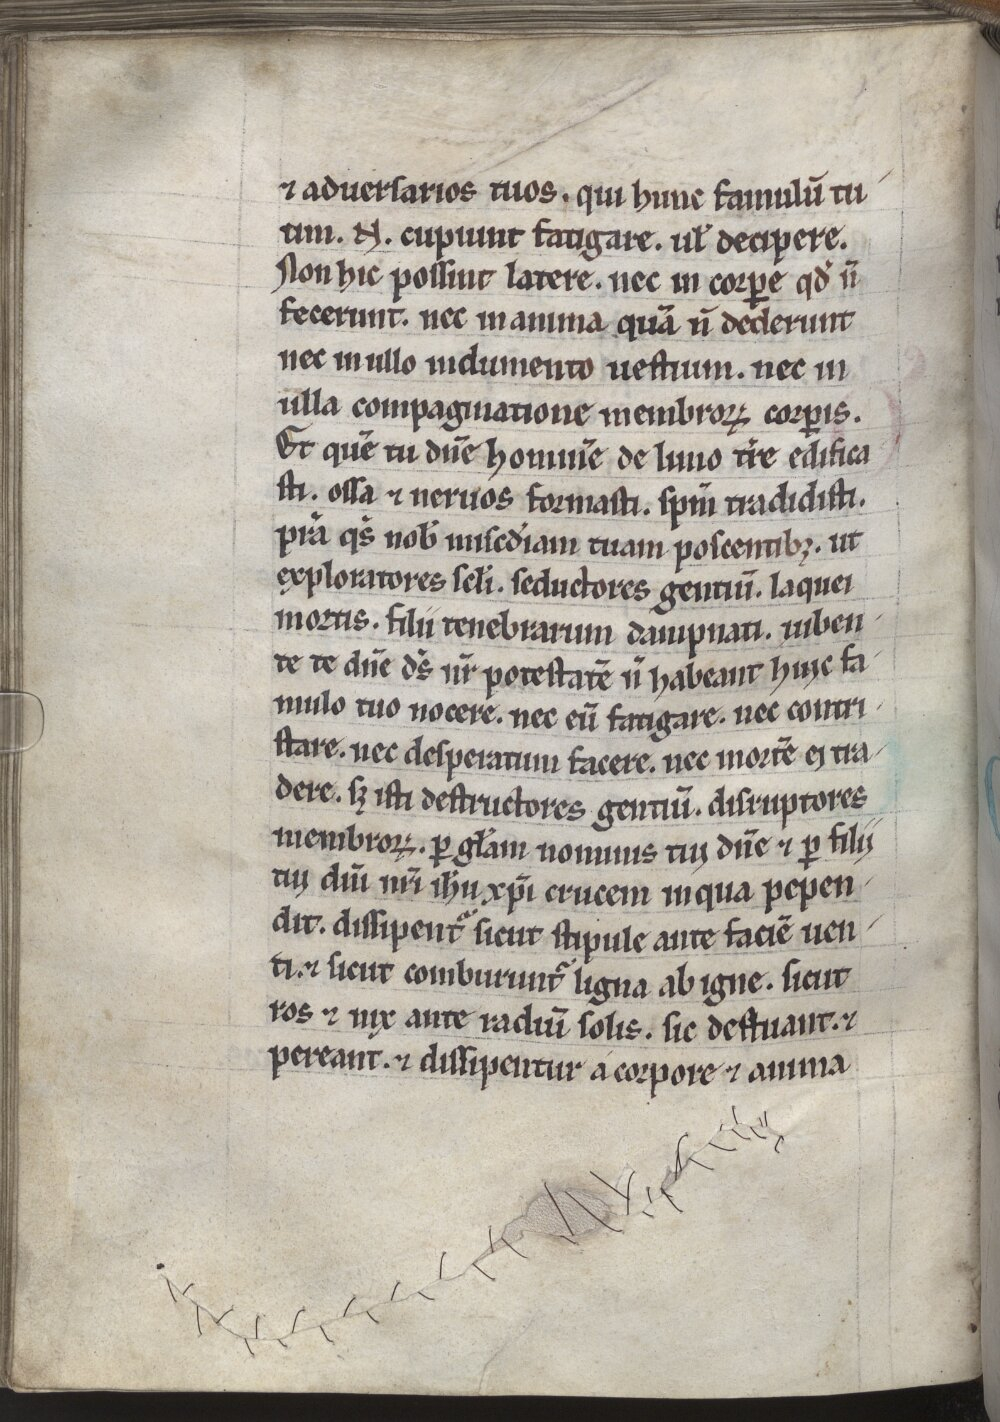 ⁊ aduersarios tuos. qui hunc famulū tu
um. N. cupiunt fatigare. ul̄ decipere.
Non hic possint latere. nec in corꝑe qd̄ n̄
fecerunt. nec in anima quā n̄ dederunt
nec in ullo indumento uestium. nec in
ulla compaginatione membroꝝ corꝑis.
Et quē tu dn̄e hominē de limo tr̄e edifica
sti. ossa ⁊ neruos formasti. sp̄m tradidisti.
p̄ra qs̄ nob̄ misc̄diam tuam poscentibꝫ. ut
exploratores scl̄i. seductores gentiū. laquei
mortis. filij tenebrarum dampnati. iuben
te te dn̄e ds̄ nr̄ potestatē n̄ habeant huic fa
mulo tuo nocere. nec eū fatigare. nec contri
stare. nec desperatum facere. nec mortē ei tra
dere. sꝫ isti destructores gentiū. disruptores
membroꝝ. ꝑ gl̄am nominis tui dn̄e ⁊ ꝑ filij
tui dn̄i nr̄i ih̄u xp̄i crucem in qua pepen
dit. dissipent᷑ sicut stipule ante faciē uen
ti. ⁊ sicut comburunt᷑ ligna ab igne. sicut
ros ⁊ nix ante radiū solis. sic defluant. ⁊
pereant. ⁊ dissipentur a corpore ⁊ anima